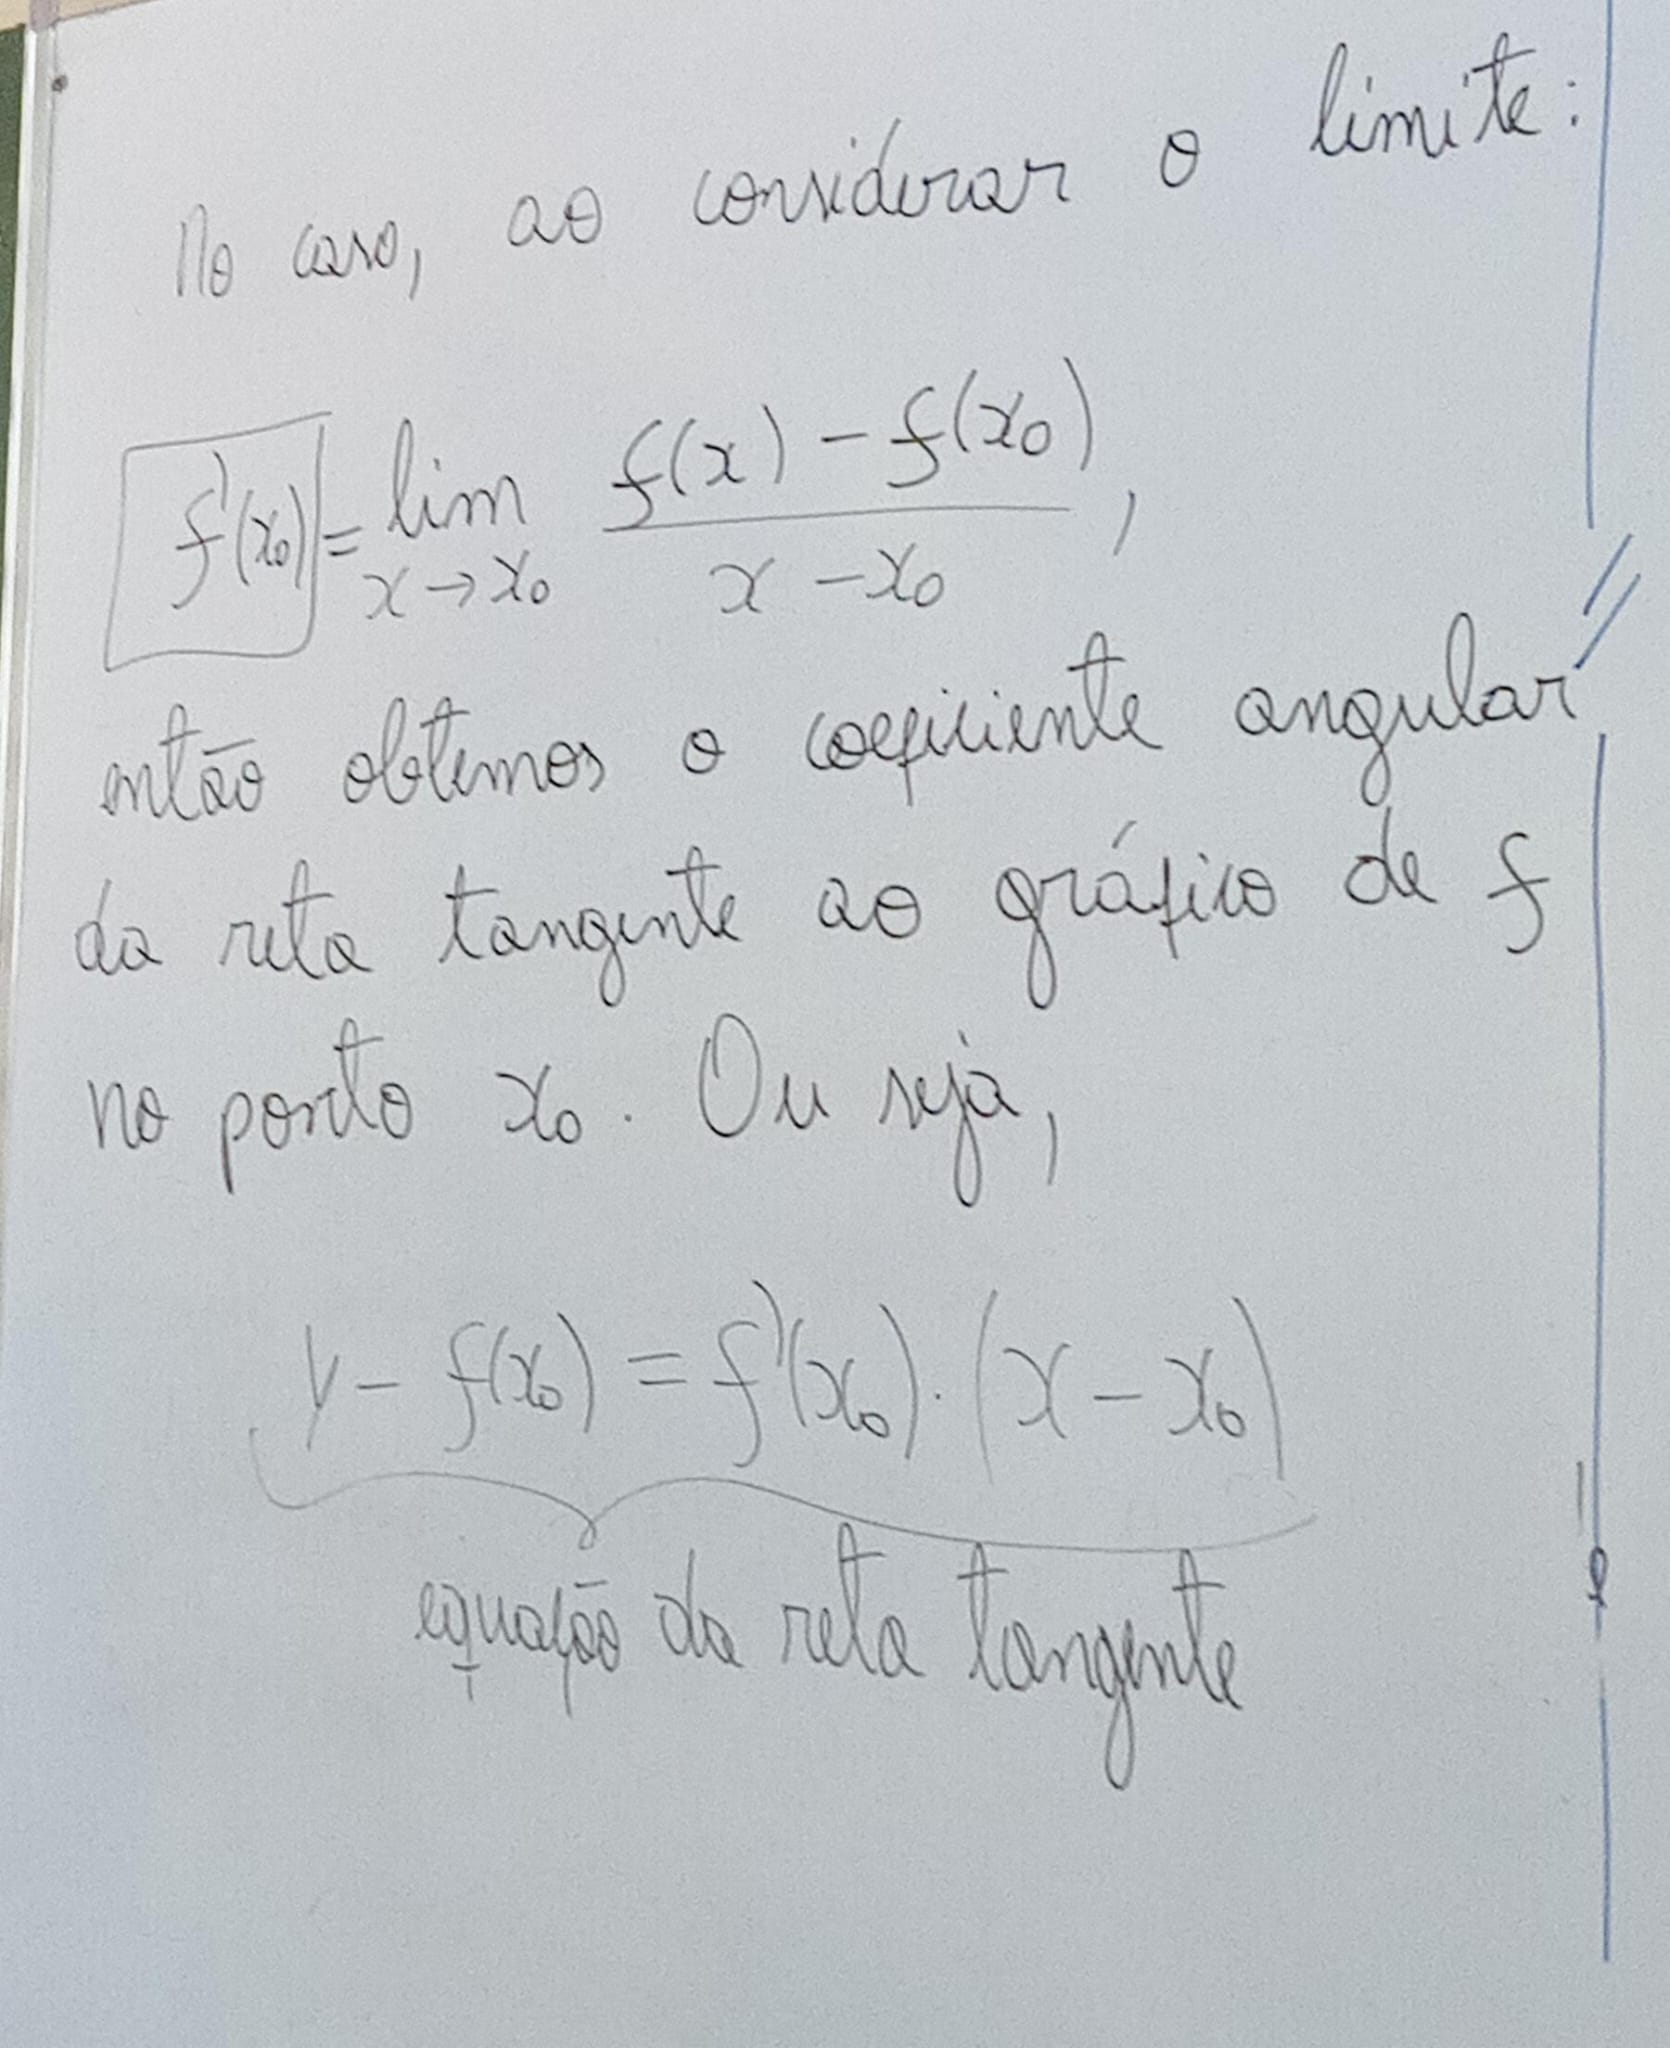 No caso, ao considerar o limite:
f'(x₀) = lim f(x) - f(x₀) ,
x → x₀ x - x₀
então obtemos o coeficiente angular
da reta tangente ao gráfico de f
no ponto x₀. Ou seja,
y - f(x₀) = f'(x₀) · (x - x₀)
equação da reta tangente